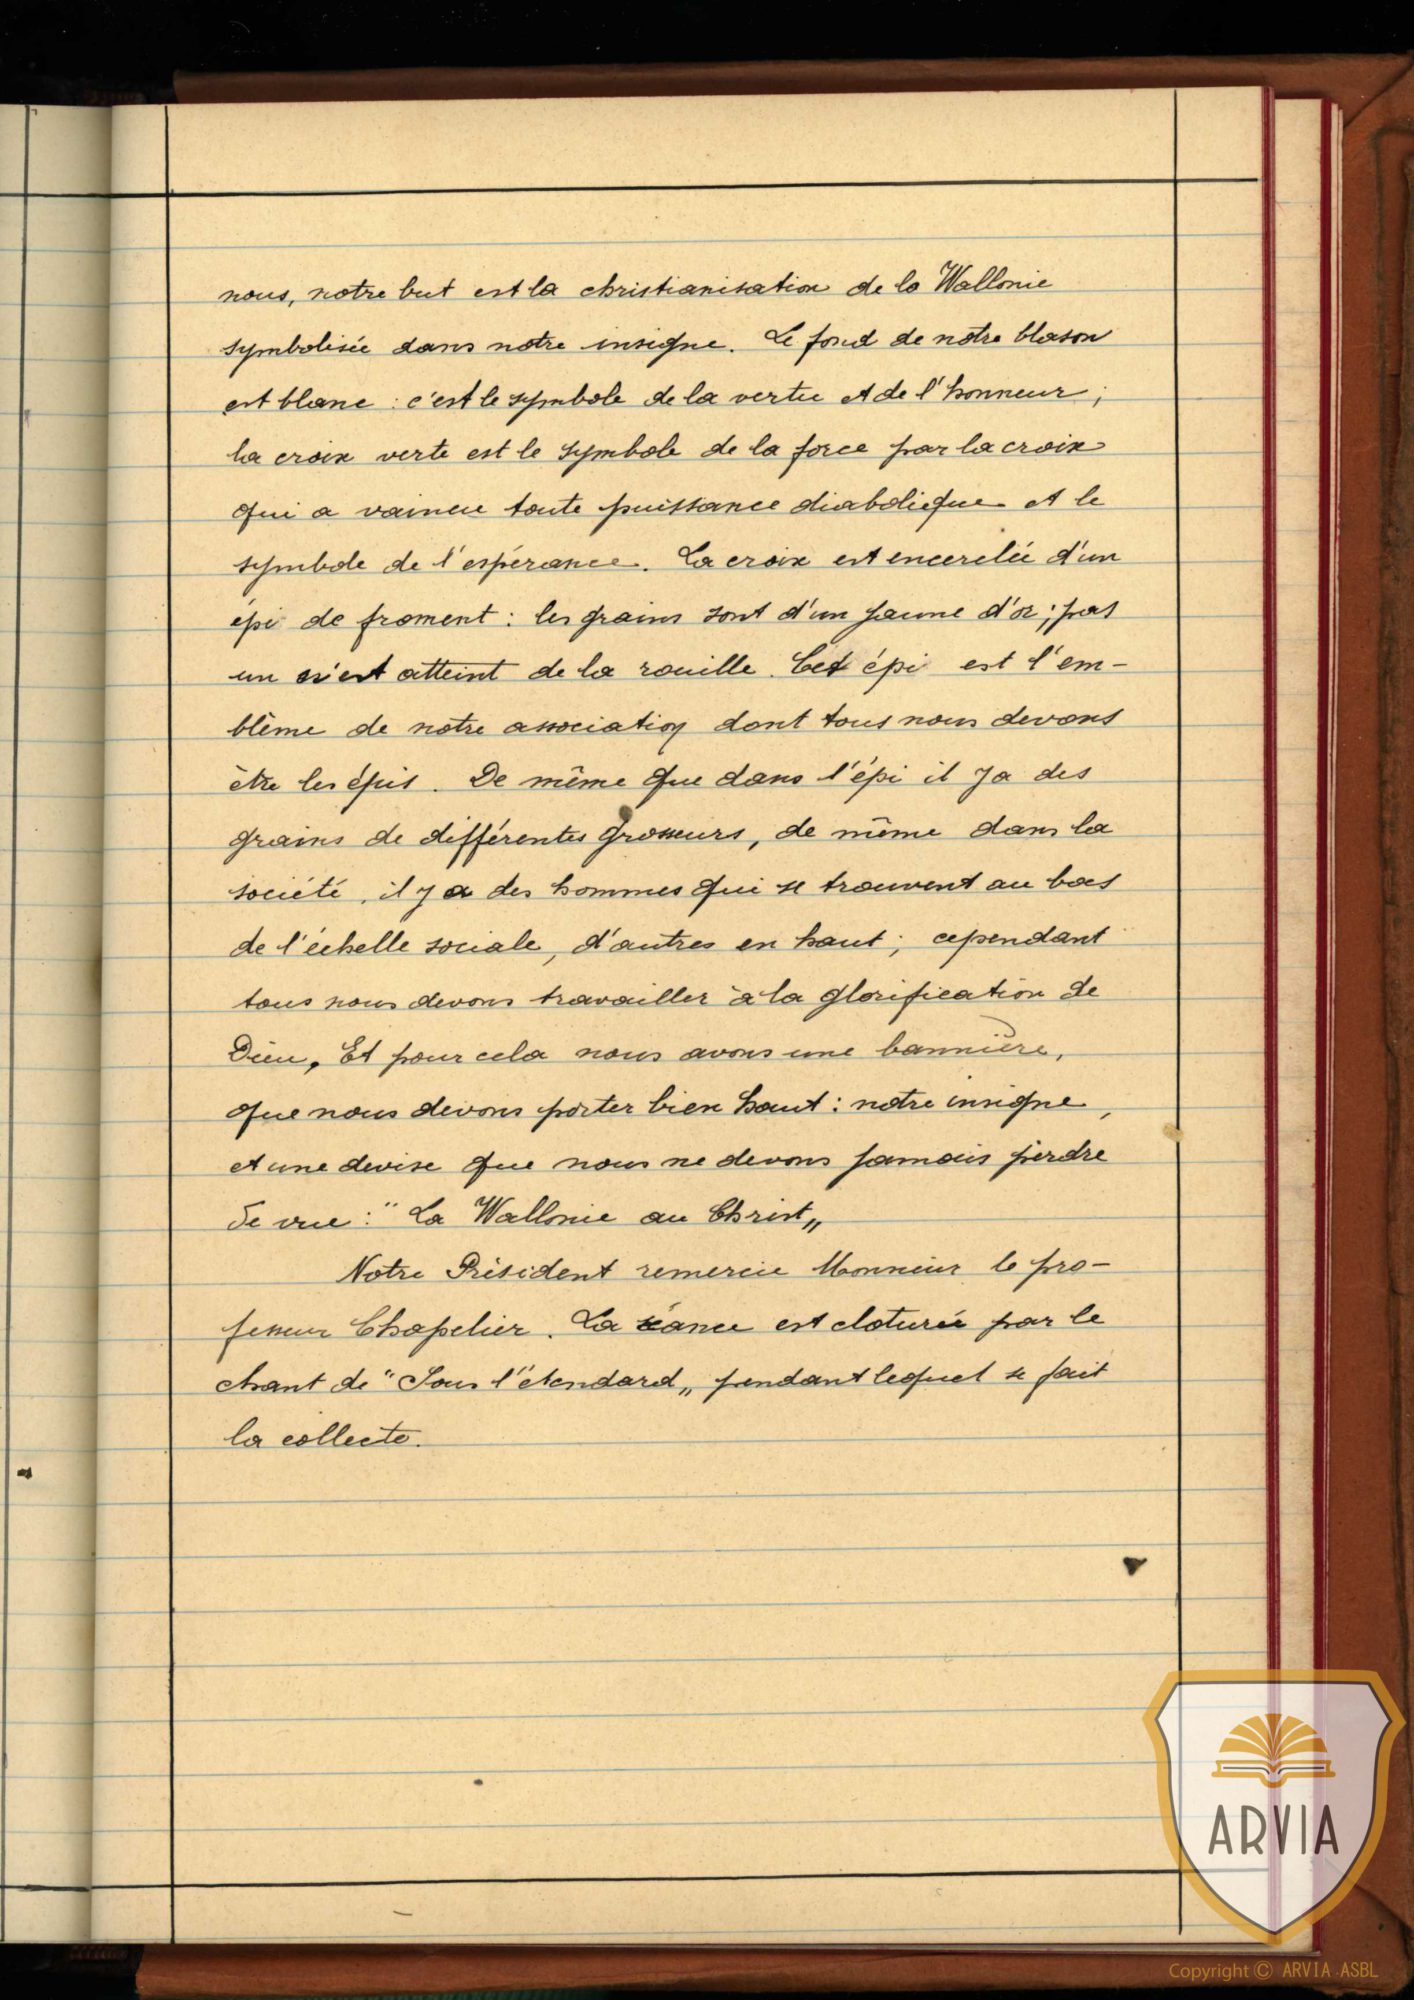 nous, notre but est la christianisation de la Wallonie
symbolisée dans notre insigne. Le fond de notre blason
est blanc : c'est le symbole de la vertu et de l'honneur ;
la croix verte est le symbole de la force par la croix
qui a vaincu toute puissance diabolique et le
symbole de l'espérance. La croix est encerclée d'un
épi de froment : les grains sont d'un jaune d'or ; pas
un n'est atteint de la rouille. Cet épi est l'em-
blème de notre association dont tous nous devons
être les épis. De même que dans l'épi il y a des
grains de différentes grosseurs, de même dans la
société, il y a des hommes qui se trouvent au bas
de l'échelle sociale, d'autres en haut ; cependant
tous nous devons travailler à la glorification de
Dieu. Et pour cela nous avons une bannière,
que nous devons porter bien haut : notre insigne,
et une devise que nous ne devons jamais perdre
de vue : "La Wallonie au Christ„
Notre Président remercie Monsieur le pro-
fesseur Chapelier. La séance est cloturée par le
chant de "Sous l'étendard„ pendant lequel se fait
la collecte.
ARVIA
Copyright © ARVIA ASBL